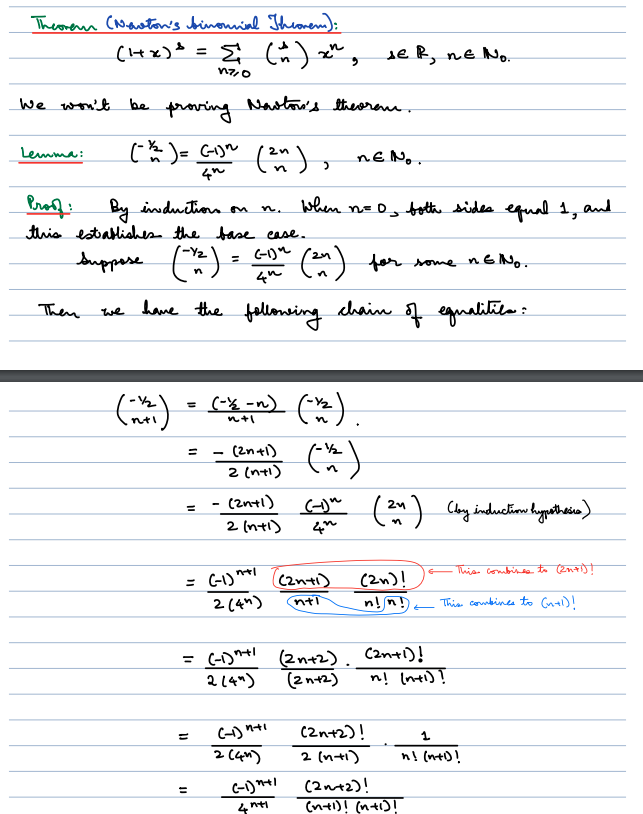 Theorem (Newton's binomial Theorem):
(1+x)^s = Σ_{n≥0} (s choose n) x^n, s∈ℝ, n∈ℕ₀.
We won't be proving Newton's theorem.
Lemma: (-1/2 choose n) = (-1)^n/4^n (2n choose n), n∈ℕ₀.
Proof: By induction on n. When n=0, both sides equal 1, and
this establishes the base case.
Suppose (-1/2 choose n) = (-1)^n/4^n (2n choose n) for some n∈ℕ₀.
Then we have the following chain of equalities:
(-1/2 choose n+1) = (-1/2 - n)/(n+1) (-1/2 choose n).
= -(2n+1)/(2(n+1)) (-1/2 choose n)
= -(2n+1)/(2(n+1)) (-1)^n/4^n (2n choose n) (by induction hypothesis)
= (-1)^{n+1}/(2(4^n)) (2n+1)/(n+1) (2n)!/(n! n!) ← This combines to (2n+1)!
← This combines to (n+1)!
= (-1)^{n+1}/(2(4^n)) (2n+2)/(2n+2) · (2n+1)!/(n! (n+1)!)
= (-1)^{n+1}/(2(4^n)) (2n+2)!/(2(n+1)) · 1/(n! (n+1)!)
= (-1)^{n+1}/4^{n+1} (2n+2)!/((n+1)! (n+1)!)